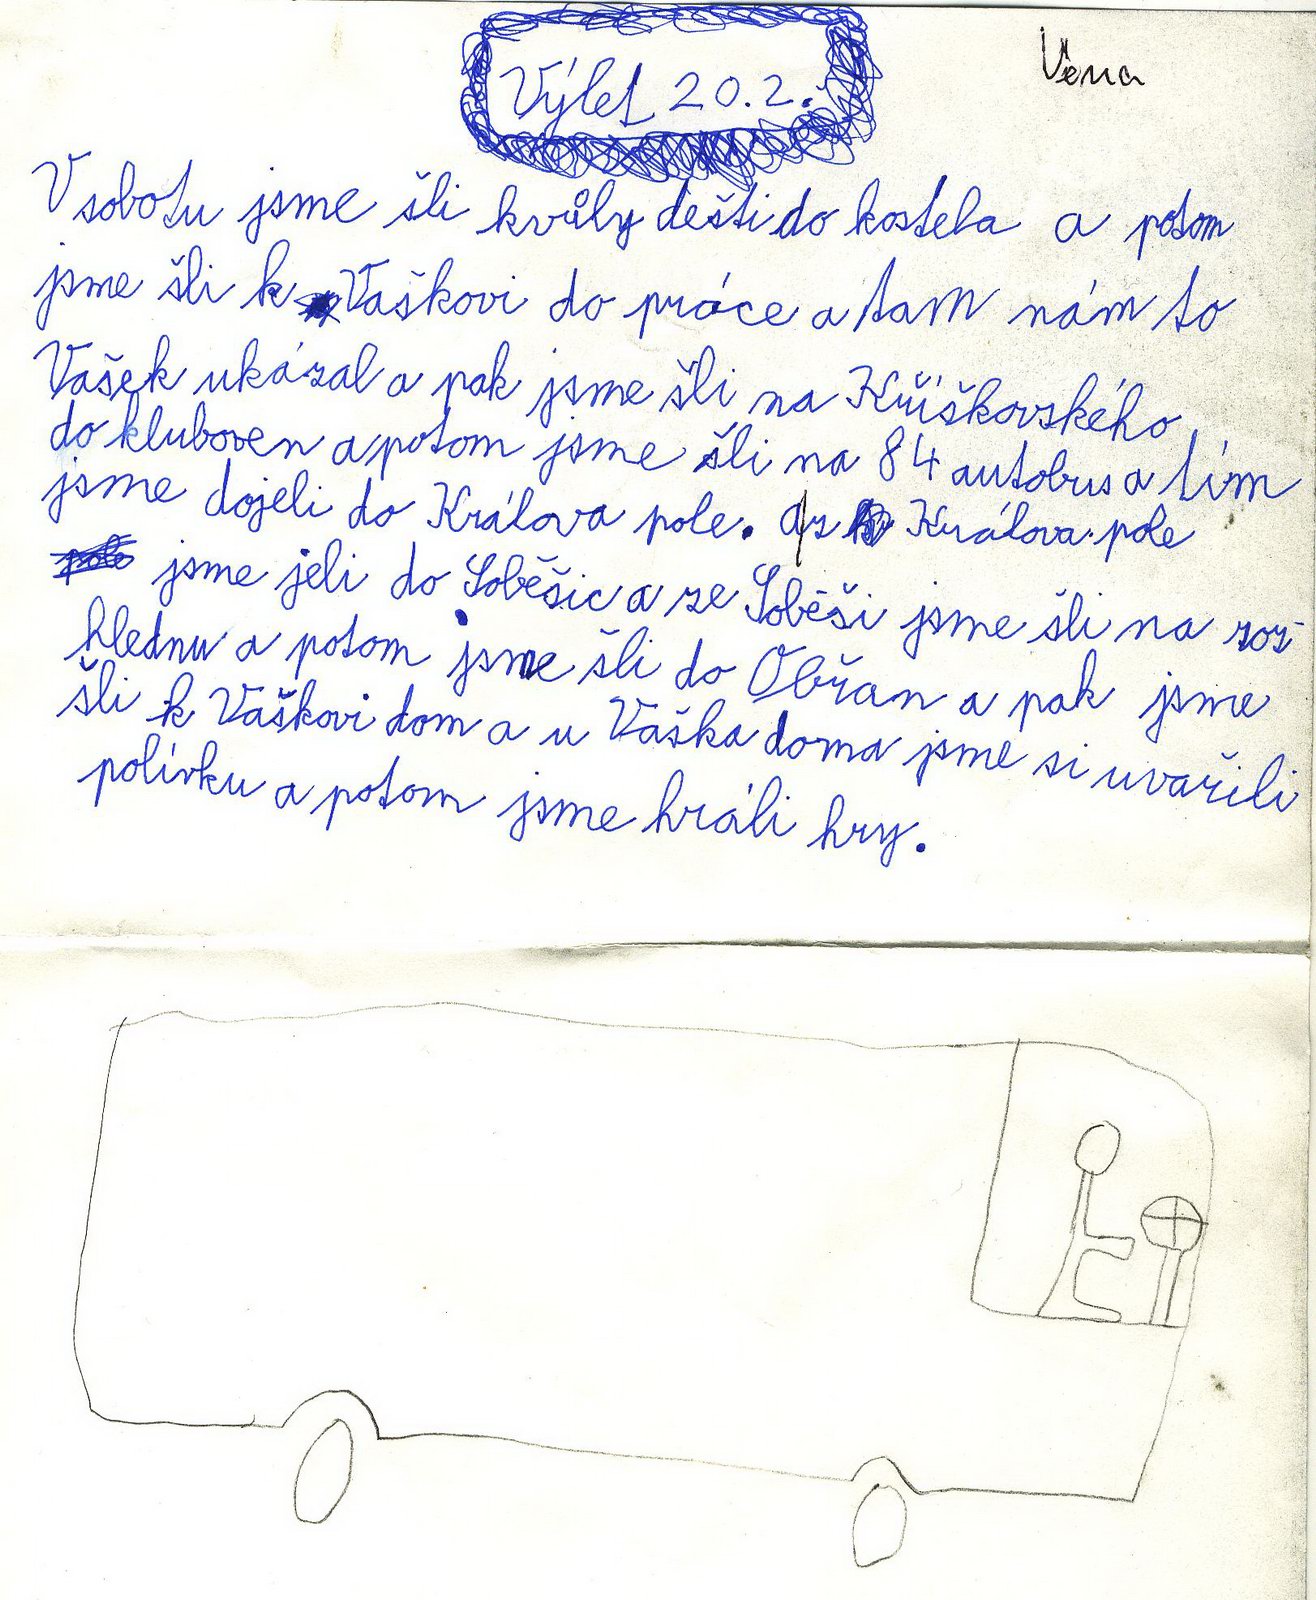 Výlet 20.2.
Věna
V sobotu jsme šli kvůly dešti do kostela a potom
jsme šli k Vaškovi do práce a tam nám to
Vašek ukázal a pak jsme šli na Kříškovského
do kluboven a potom jsme šli na 84 autobus a tím
jsme dojeli do Králova pole. Az Králova pole
jsme jeli do Soběšic a ze Soběši jsme šli na roz-
hlednu a potom jsme šli do Obřan a pak jsme
šli k Vaškovi dom a u Vaška doma jsme si uvařili
polívku a potom jsme hráli hry.